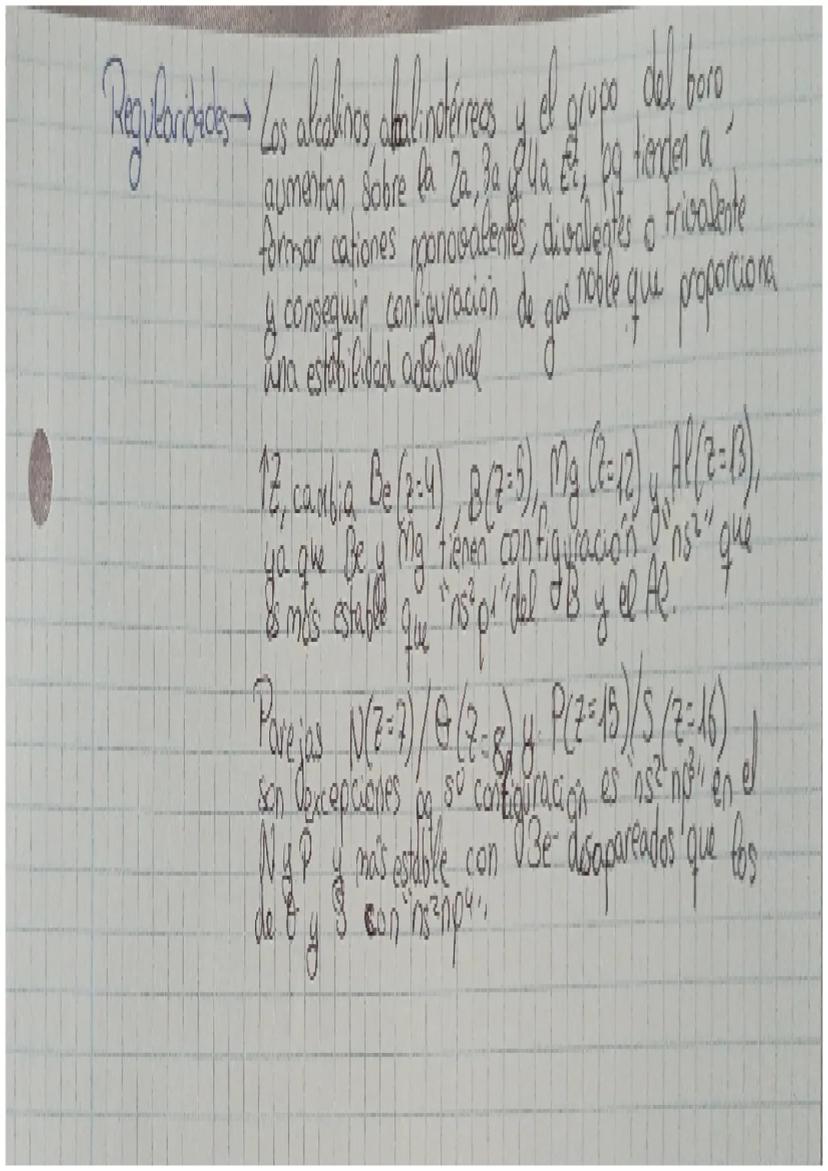 Regularidades → Los alcalinos, alcalinotérreos y el grupo del boro
aumentan sobre la 2a, 3a y 4a EI, pq tienden a
formar cationes monovalentes, divalentes o trivalente
y conseguir configuración de gas noble que proporciona
una estabilidad adicional
↑Z, cambia Be (z=4), B(z=5), Mg (z=12) y Al(z=13),
ya que Be y Mg tienen configuración "ns²" que
es más estable que "ns²p¹" del B y el Al.
Parejas N(z=7)/O(z=8) y P(z=15)/S(z=16)
son excepciones pq su configuración es "ns²np³" en el
N y P y más estable con 3e⁻ desapareados que los
de O y S con "ns²np⁴".